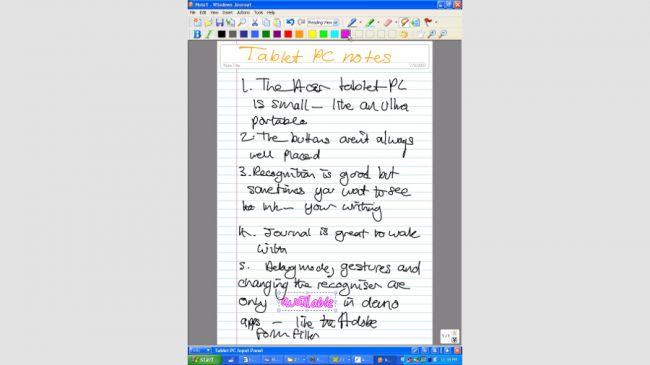 Note1 - Windows Journal
File Edit View Insert Actions Tools Help
Reading View
B I
Tablet PC notes
Note Title
1. The Acer tablet PC
is small - like an ultra
portable
2. The buttons aren't always
well placed
3. Recognition is good but
sometimes you want to see
ink - your writing
4. Journal is great to work
with
5. Debug mode, gestures and
changing the recogniser are
only available in demo
apps - like the Adobe
form filler
1/1
Tablet PC Input Panel
start